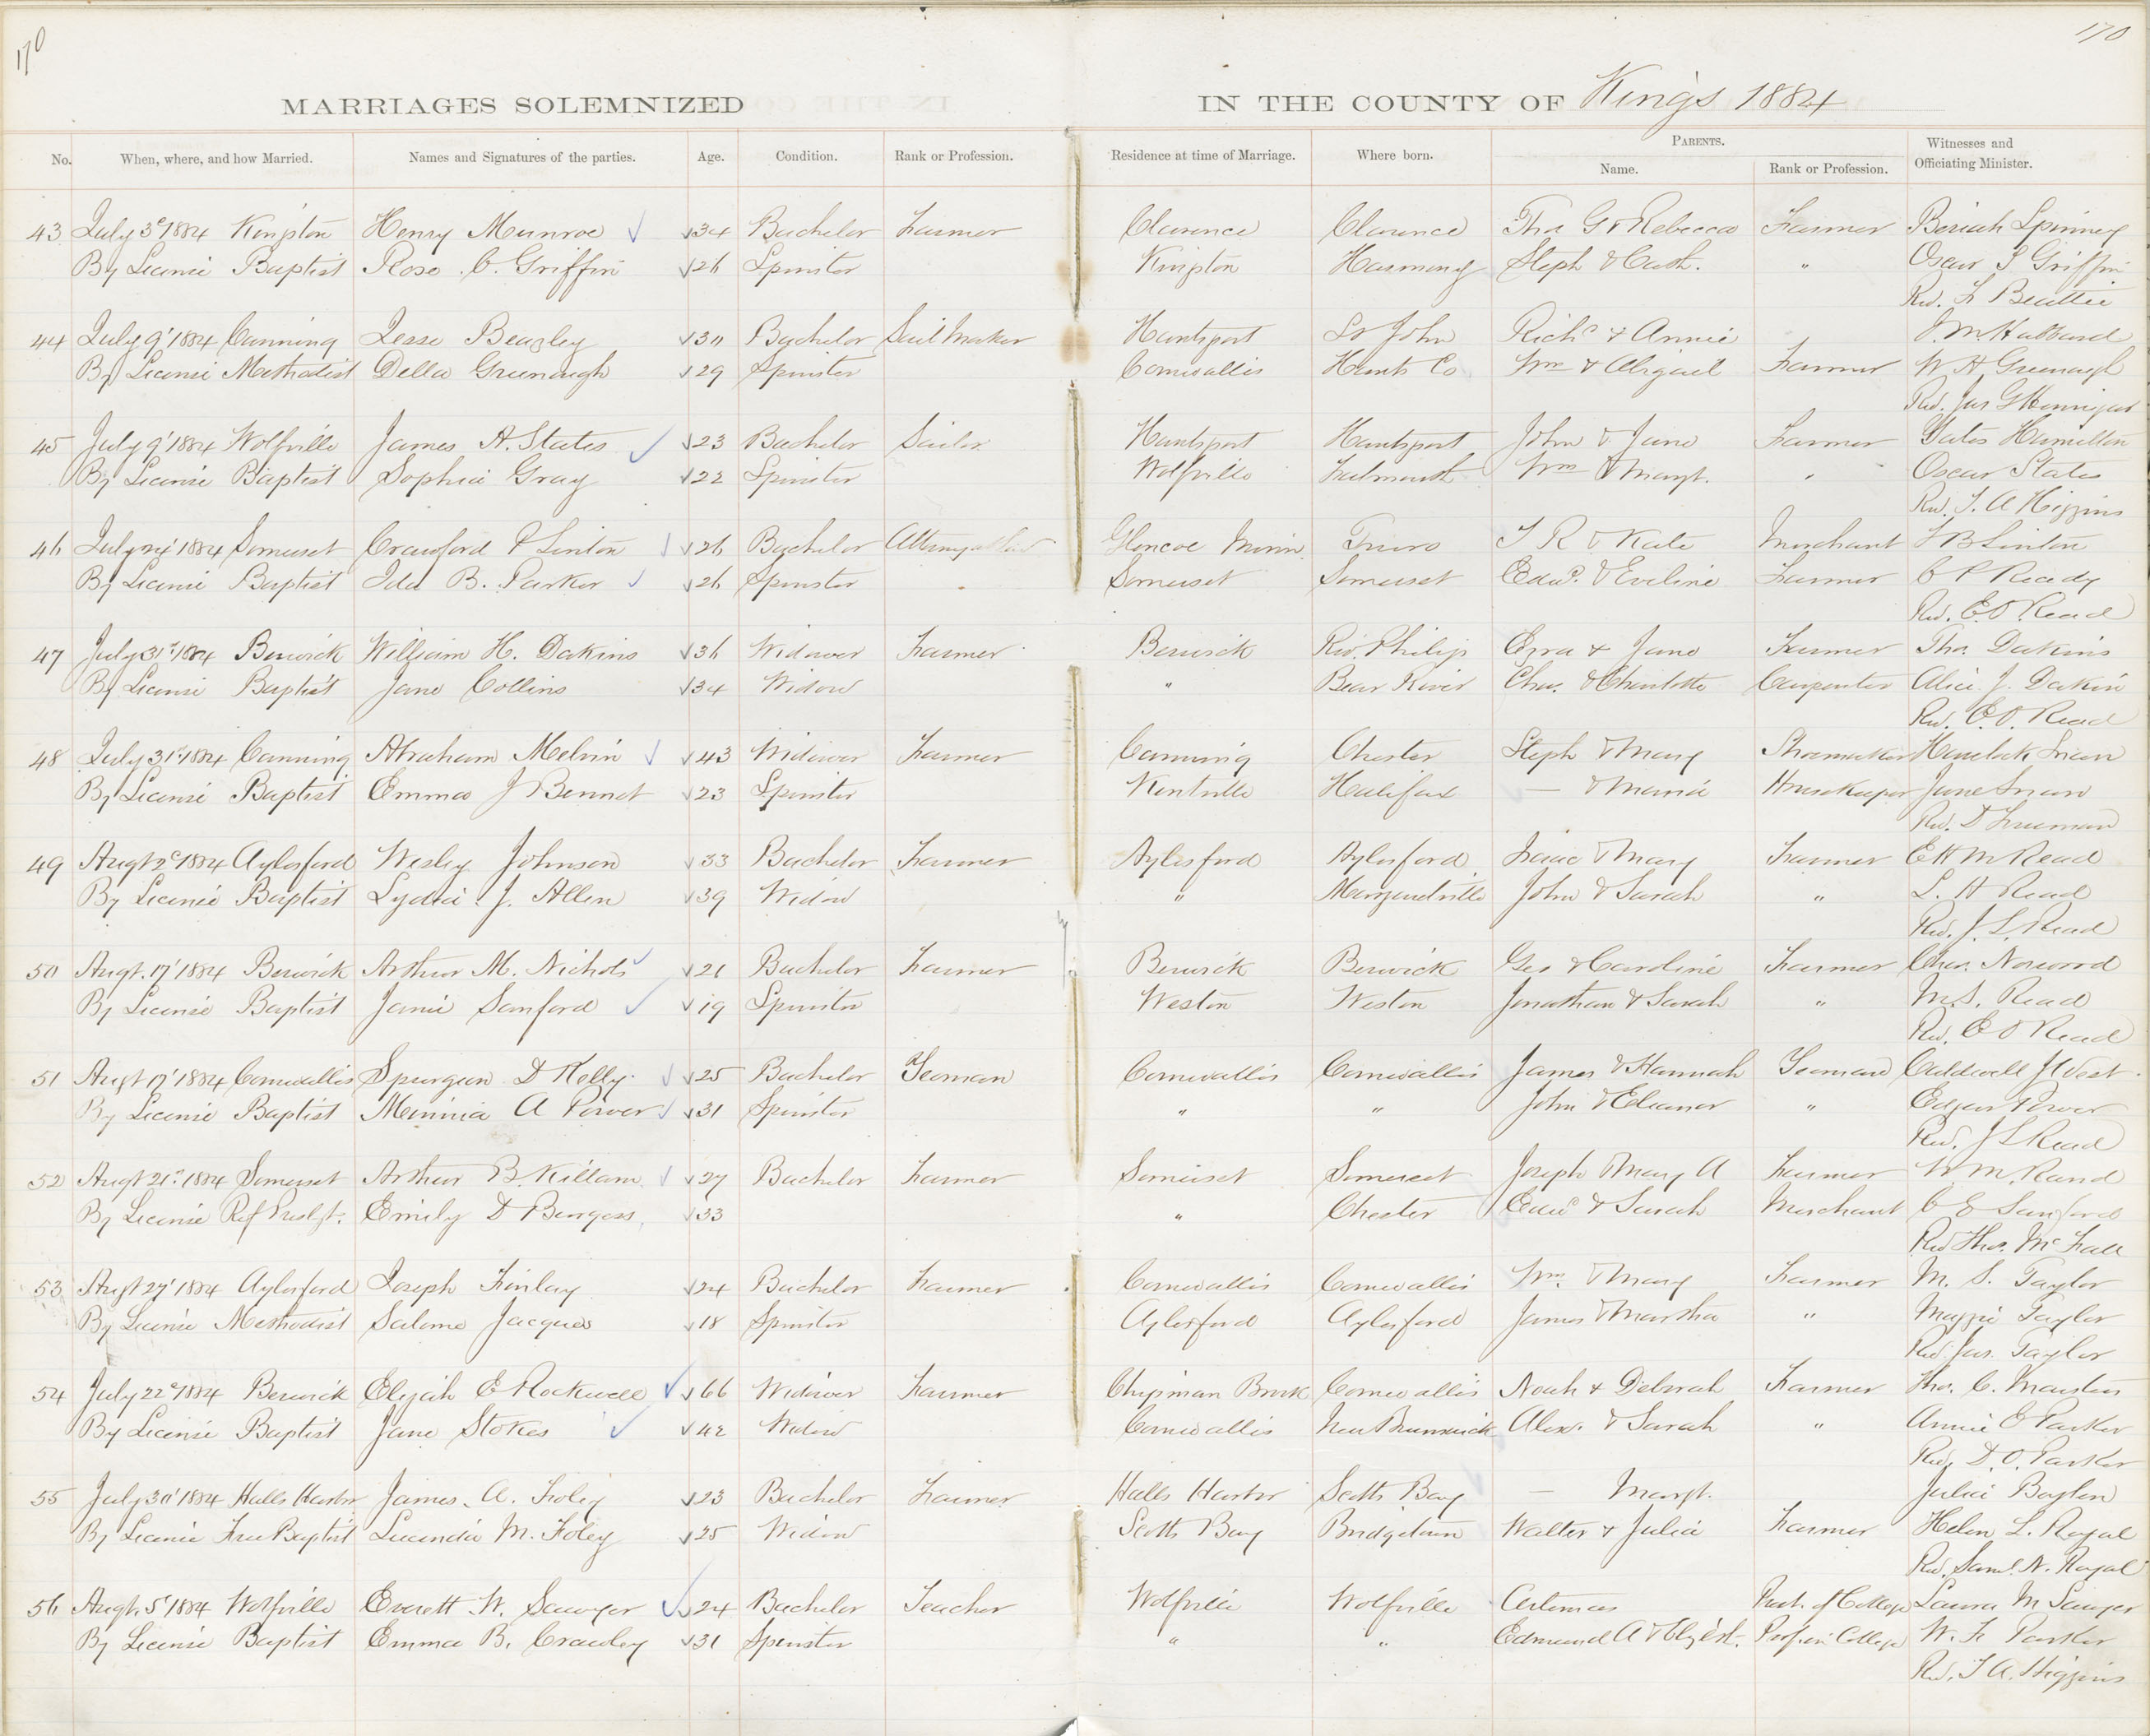 170
170
MARRIAGES SOLEMNIZED IN THE COUNTY OF Kings 1884
No. When, where, and how Married. Names and Signatures of the parties. Age. Condition. Rank or Profession. Residence at time of Marriage. Where born. PARENTS. Name. Rank or Profession. Witnesses and Officiating Minister.
43 July 3d 1884 Kingston Henry Munroe 34 Bachelor Farmer Clarence Clarence Tho G & Rebecca Farmer Beriah Spinney
By License Baptist Rose C. Griffin 26 Spinster Kingston Harmony Steph & Cath. " Oscar S Griffin
Rev. F Beattie
44 July 9' 1884 Canning Jesse Beazley 30 Bachelor Sail Maker Hantsport St John Richd & Annie J. M. Hubbard
By License Methodist Della Greenough 29 Spinster Cornwallis Hants Co Wm & Abigail Farmer W H Greenough
Rev. Jas G Hennigar
45 July 9' 1884 Wolfville James A. States 23 Bachelor Sailor Hantsport Hantsport John & Jane Farmer Yates Hamilton
By License Baptist Sophia Gray 22 Spinster Wolfville Falmouth Wm & Margt. " Oscar States
Rev. T. A Higgins
46 July 24' 1884 Somerset Crawford P Linton 26 Bachelor Glencoe Minn. Truro T R & Kate Merchant F B Linton
By License Baptist Ida B. Parker 26 Spinster Somerset Somerset Edwd. & Eveline Farmer C P Ready
Rev. E. O. Read
47 July 31st 1884 Berwick William H. Dakins 36 Widower Farmer Berwick Riv. Philip Ezra & Jane Farmer Tho. Dakins
By License Baptist Jane Collins 34 Widow " Bear River Chas. & Charlotte Carpenter Alice J. Dakin
Rev. E. O. Read
48 July 31st 1884 Canning Abraham Melvin 43 Widower Farmer Canning Chester Steph & Mary Shoemaker Havelock
By License Baptist Emma J Bennet 23 Spinster Kentville Halifax — & Maria Housekeeper Jane
Rev. D Freeman
49 Augt 2d 1884 Aylesford Wesley Johnson 33 Bachelor Farmer Aylesford Aylesford Isaac & Mary Farmer E H M Read
By License Baptist Lydia J. Allen 39 Widow " Margaretville John & Sarah " L. H Read
Rev. J. L. Read
50 Augt. 17' 1884 Berwick Arthur M. Nichols 21 Bachelor Farmer Berwick Berwick Geo & Caroline Farmer Chas. Norwood
By License Baptist Janie Sanford 19 Spinster Weston Weston Jonathan & Sarah " M. S. Read
Rev. E O Read
51 Augt 17' 1884 Cornwallis Spurgeon D Kelly 25 Bachelor Yeoman Cornwallis Cornwallis James & Hannah Yeoman Caldwell J West
By License Baptist Minnia A Power 31 Spinster " " John & Eleanor " Edgar Power
Rev. J L Read
52 Augt 21st 1884 Somerset Arthur B. Killam 27 Bachelor Farmer Somerset Somerset Joseph & Mary A Farmer W M. Rand
By License Ref Presbyt. Emily D Burgess 33 " Chester Edwd & Sarah Merchant C E Sanford
Rev Thos. McFall
53 Augt 27' 1884 Aylesford Joseph Finlay 24 Bachelor Farmer Cornwallis Cornwallis Wm. & Mary Farmer M. S. Taylor
By License Methodist Salome Jacques 18 Spinster Aylesford Aylesford James & Martha " Maggie Taylor
Rev. Jas. Taylor
54 July 22d 1884 Berwick Elijah E Rockwell 66 Widower Farmer Chipman Brook Cornwallis Noah & Deborah Farmer Tho. C. Masters
By License Baptist Jane Stokes 42 Widow Cornwallis New Brunswick Alex. & Sarah " Annie E Parker
Rev. D. O. Parker
55 July 30' 1884 Halls Harbor James A. Foley 23 Bachelor Farmer Halls Harbor Scotts Bay — Margt. Julia Baylon
By License Free Baptist Lucinda M. Foley 25 Widow Scotts Bay Bridgetown Walter & Julia Farmer Helen L. Royal
Rev. Saml. N. Royal
56 Augt. 5' 1884 Wolfville Everett W. Sawyer 24 Bachelor Teacher Wolfville Wolfville Artemas Prest. of College Laura M Sawyer
By License Baptist Emma B. Crawley 31 Spinster " " Edmund A & Elizbt. Prof. in College W. F. Parker
Rev. T A. Higgins